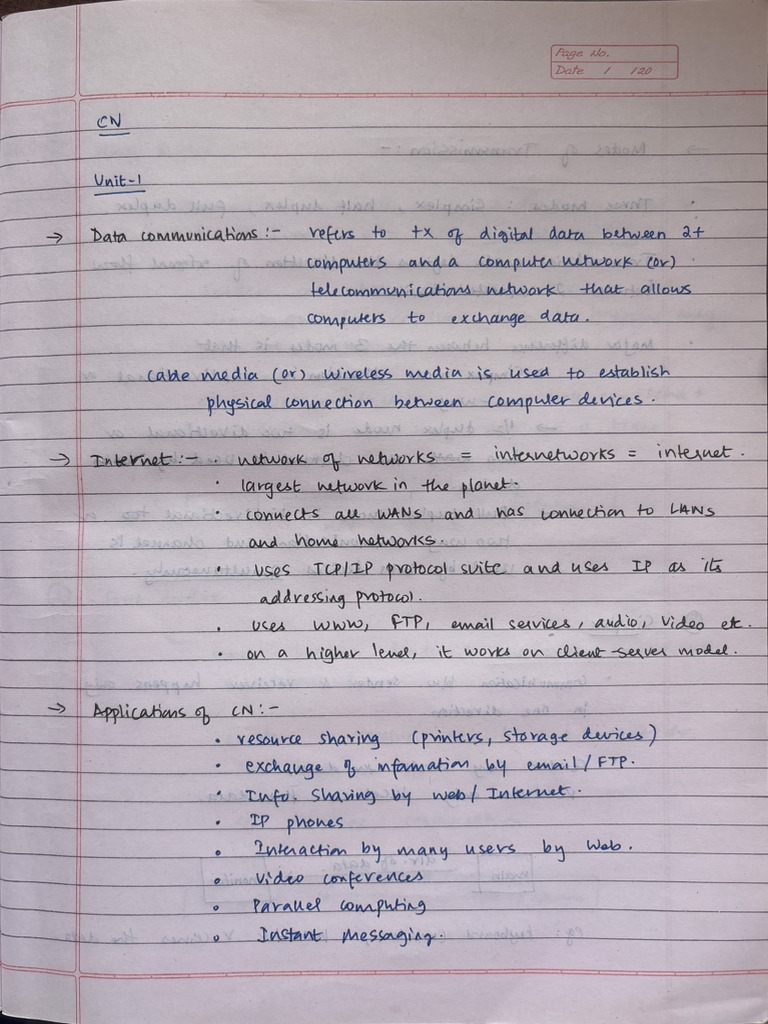 Page No.
Date / /20
CN
Unit-1
→ Data communications :- refers to tx of digital data between 2+
computers and a computer network (or)
telecommunications network that allows
computers to exchange data.
cable media (or) wireless media is used to establish
physical connection between computer devices.
→ Internet :- • network of networks = internetworks = internet.
• largest network in the planet.
• connects all WANs and has connection to LANs
and home networks.
• uses TCP/IP protocol suite and uses IP as its
addressing protocol.
• uses WWW, FTP, email services, audio, video etc.
• on a higher level, it works on client-server model.
→ Applications of CN :-
• resource sharing (printers, storage devices)
• exchange of information by email / FTP.
• Info. sharing by web / Internet.
• IP phones
• Interaction by many users by Web.
• video conferences
• Parallel computing
• Instant Messaging.